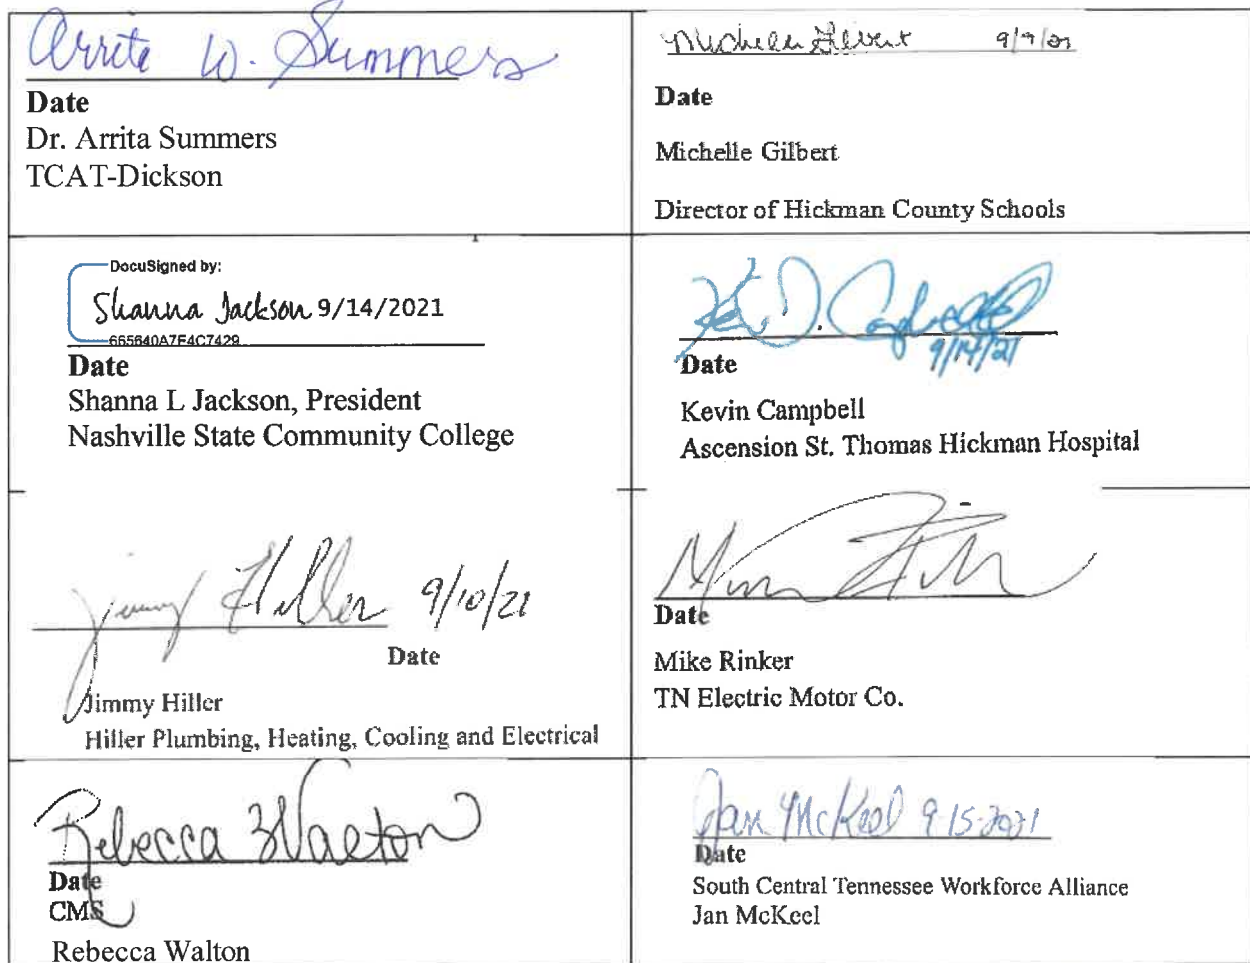 Arrita W. Summers
Date
Dr. Arrita Summers
TCAT-Dickson
Michelle Gilbert 9/9/21
Date
Michelle Gilbert
Director of Hickman County Schools
DocuSigned by:
Shanna Jackson 9/14/2021
665640A7E4C7429
Date
Shanna L Jackson, President
Nashville State Community College
K D. Campbell
9/14/21
Date
Kevin Campbell
Ascension St. Thomas Hickman Hospital
Jimmy Hiller 9/10/21
Date
Jimmy Hiller
Hiller Plumbing, Heating, Cooling and Electrical
Date
Mike Rinker
TN Electric Motor Co.
Rebecca Walton
Date
CMS
Rebecca Walton
Jan McKeel 9-15-2021
Date
South Central Tennessee Workforce Alliance
Jan McKeel